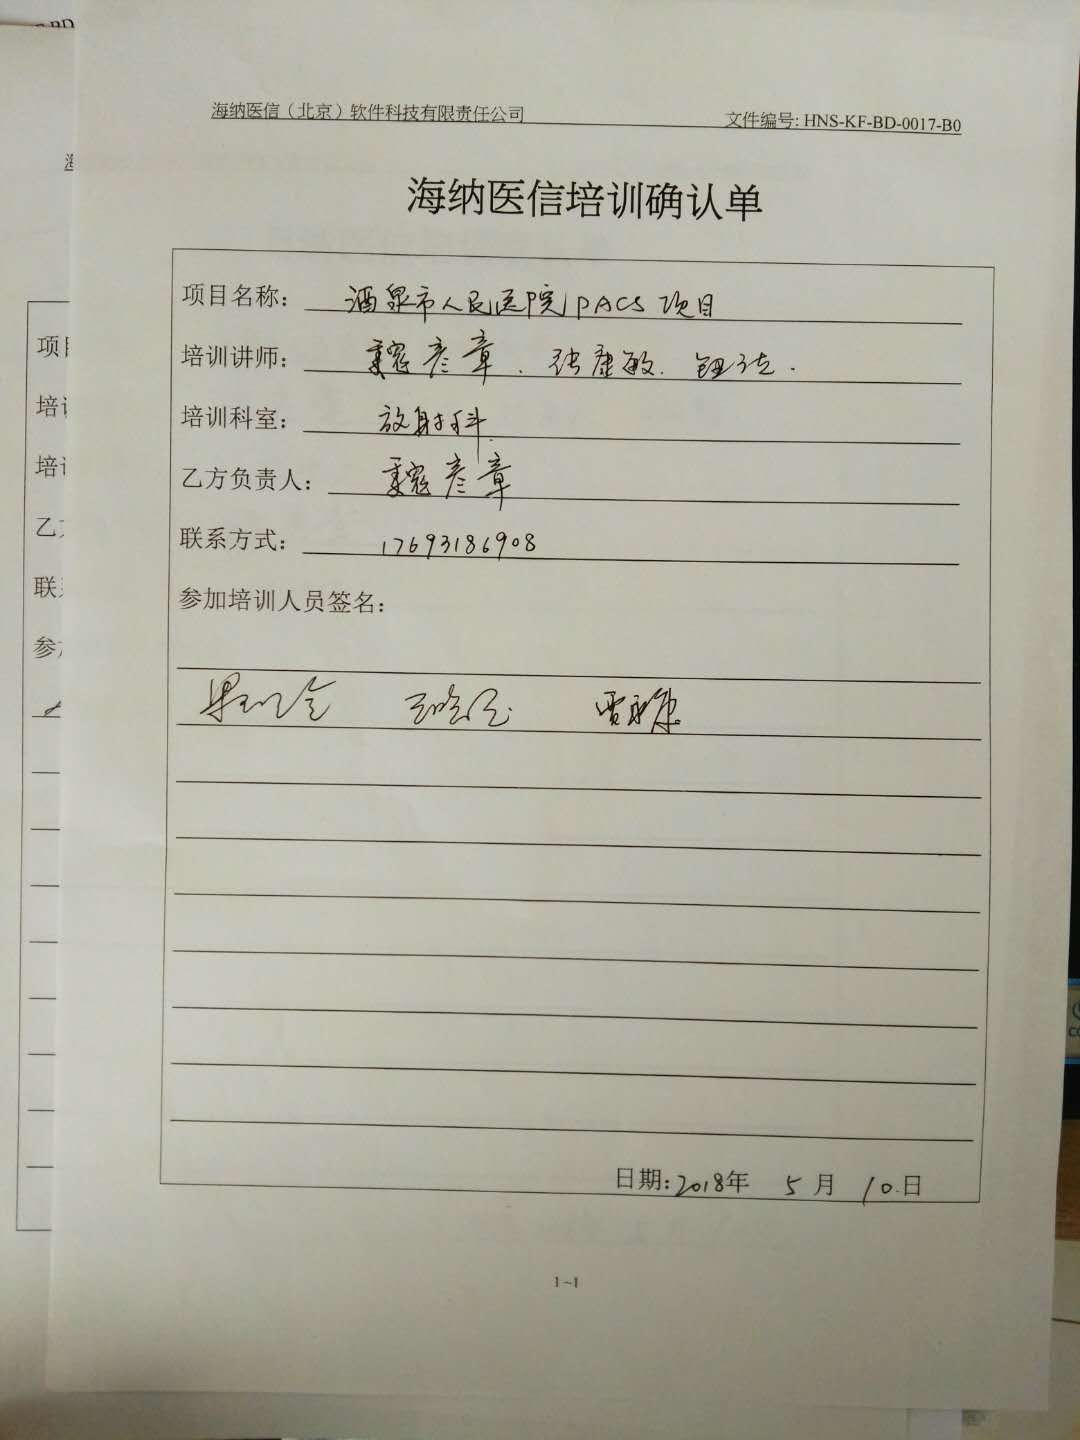 海纳医信（北京）软件科技有限责任公司 文件编号: HNS-KF-BD-0017-B0
海纳医信培训确认单
项目名称： 酒泉市人民医院PACS项目
培训讲师： 彦章. 张康敏.
培训科室： 放射科
乙方负责人： 彦章
联系方式： 17693186908
参加培训人员签名：
日期: 2018年 5月 10.日
1~1